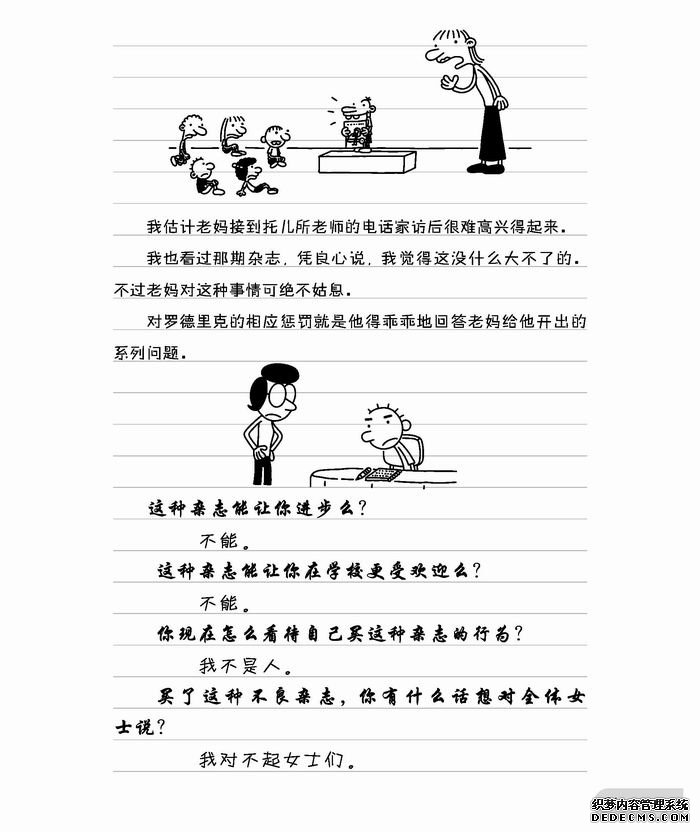 我估计老妈接到托儿所老师的电话家访后很难高兴得起来。
我也看过那期杂志，凭良心说，我觉得这没什么大不了的。
不过老妈对这种事情可绝不姑息。
对罗德里克的相应惩罚就是他得乖乖地回答老妈给他开出的
系列问题。
这种杂志能让你进步么？
不能。
这种杂志能让你在学校更受欢迎么？
不能。
你现在怎么看待自己买这种杂志的行为？
我不是人。
买了这种不良杂志，你有什么话想对全体女
士说？
我对不起女士们。
织梦内容管理系统
DEDECMS.COM